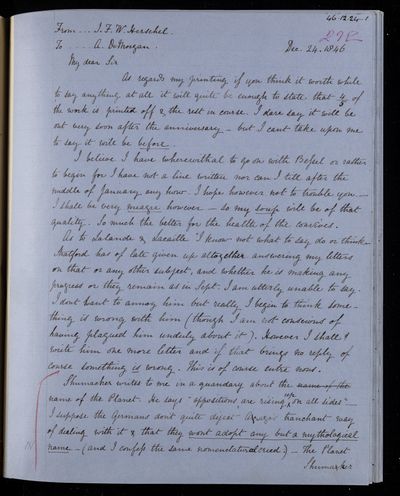 46.12.24.1
From .... J. F. W. Herschel.
To ..... A. DeMorgan.
Dec. 24. 1846
My dear Sir
As regards my printing if you think it worth while
to say anything at all it will quite be enough to state that 4/5 of
the work is printed off & the rest in course. I dare say it will be
out very soon after the anniversary – but I cant take upon me
to say it will be before.
I believe I have wherewithal to go on with Bessel or rather
to begin for I have not a line written nor can I till after the
middle of January any how. I hope however not to trouble you. –
I shall be very meagre however – so my soup will be of that
quality. So much the better for the health of the
As to Lalande & Lacaille I know not what to say do or think –
Stratford has of late given up altogether answering my letters
on that or any other subject, and whether he is making any
progress or they remain as in Sept. I am utterly unable to say.
I dont want to annoy him but really I begin to think some-
thing is wrong with him (though I am not conscious of
having plagued him unduly about it). However I shall
write him one more letter and if that brings no reply of
course something is wrong. This is of course entre nous.
Shumacher writes to me in a quandary about the name of the
name of the Planet. He says "oppositions are rising up on all sides"
I suppose the Germans dont quite digest Arago's tranchant way
of dealing with it & that they wont adopt any but a mythological
name – (and I confess the same nomenclatural creed) – the Planet
Shumacher